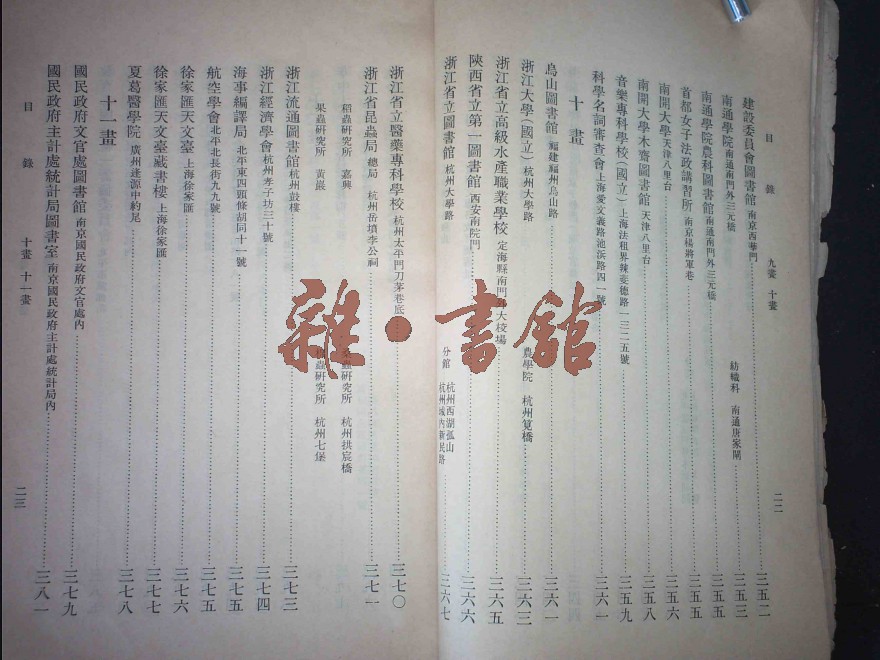 目錄　九畫　十畫
二二
建設委員會圖書館 南京西華門 三五二
南通學院 南通南門外三元橋　紡織科　南通唐家閘 三五三
南通學院農科圖書館 南通南門外三元橋 三五五
首都女子法政講習所 南京楊將軍巷 三五五
南開大學 天津八里台 三五六
南開大學木齋圖書館 天津八里台 三五八
音樂專科學校(國立) 上海法租界辣斐德路一三二五號 三五九
科學名詞審查會 上海愛文義路池浜路四一號 三六一
十畫
烏山圖書館 福建福州烏山路 三六一
浙江大學(國立) 杭州大學路　農學院　杭州筧橋 三六三
浙江省立高級水產職業學校 定海縣南門外大校場 三六五
陝西省立第一圖書館 西安南院門 三六六
浙江省立圖書館 杭州大學路　分館　杭州西湖孤山　杭州城內新民路 三六七
浙江省立醫藥專科學校 杭州太平門刀茅巷底 三七〇
浙江省昆蟲局 總局　杭州岳墳李公祠 三七一
稻蟲研究所　嘉興　蟲研究所　杭州拱宸橋
果蟲研究所　黃巖　蟲研究所　杭州七堡
浙江流通圖書館 杭州鼓樓 三七三
浙江經濟學會 杭州孝子坊三十號 三七四
海事編譯局 北平東四頭條胡同十一號 三七五
航空學會 北平北長街九九號 三七五
徐家匯天文臺 上海徐家匯 三七六
徐家匯天文臺藏書樓 上海徐家匯 三七七
夏葛醫學院 廣州逢源中約尾 三七八
十一畫
國民政府文官處圖書館 南京國民政府文官處內 三七九
國民政府主計處統計局圖書室 南京國民政府主計處統計局內 三八一
目錄　十畫　十一畫
二三
雜·書館